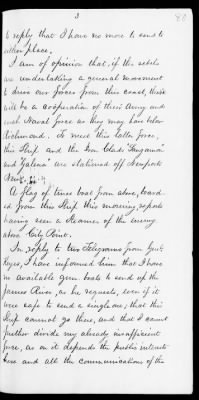 3
to reply that I have no more to send to
either place.
I am of opinion that, if the rebels
are undertaking a general movement
to drive our forces from this coast, there
will be a coöperation of their Army and
such Naval force as they may have below
Richmond. To meet this latter force,
this Ship and the Iron Clads "Naugatuck"
and "Galena" are stationed off Newports
News.
A flag of truce boat from above, board-
ed from this Ship this morning, reports
having seen a Steamer of the enemy
above City Point.
In reply to two Telegrams from Genl.
Keyes, I have informed him that I have
no available gun boats to send up the
James River, as he requests, even if it
were safe to send a single one; that this
Ship cannot go there, and that I cannot
further divide my already insufficient
force, as on it depends the public interests
here and all the communications of the